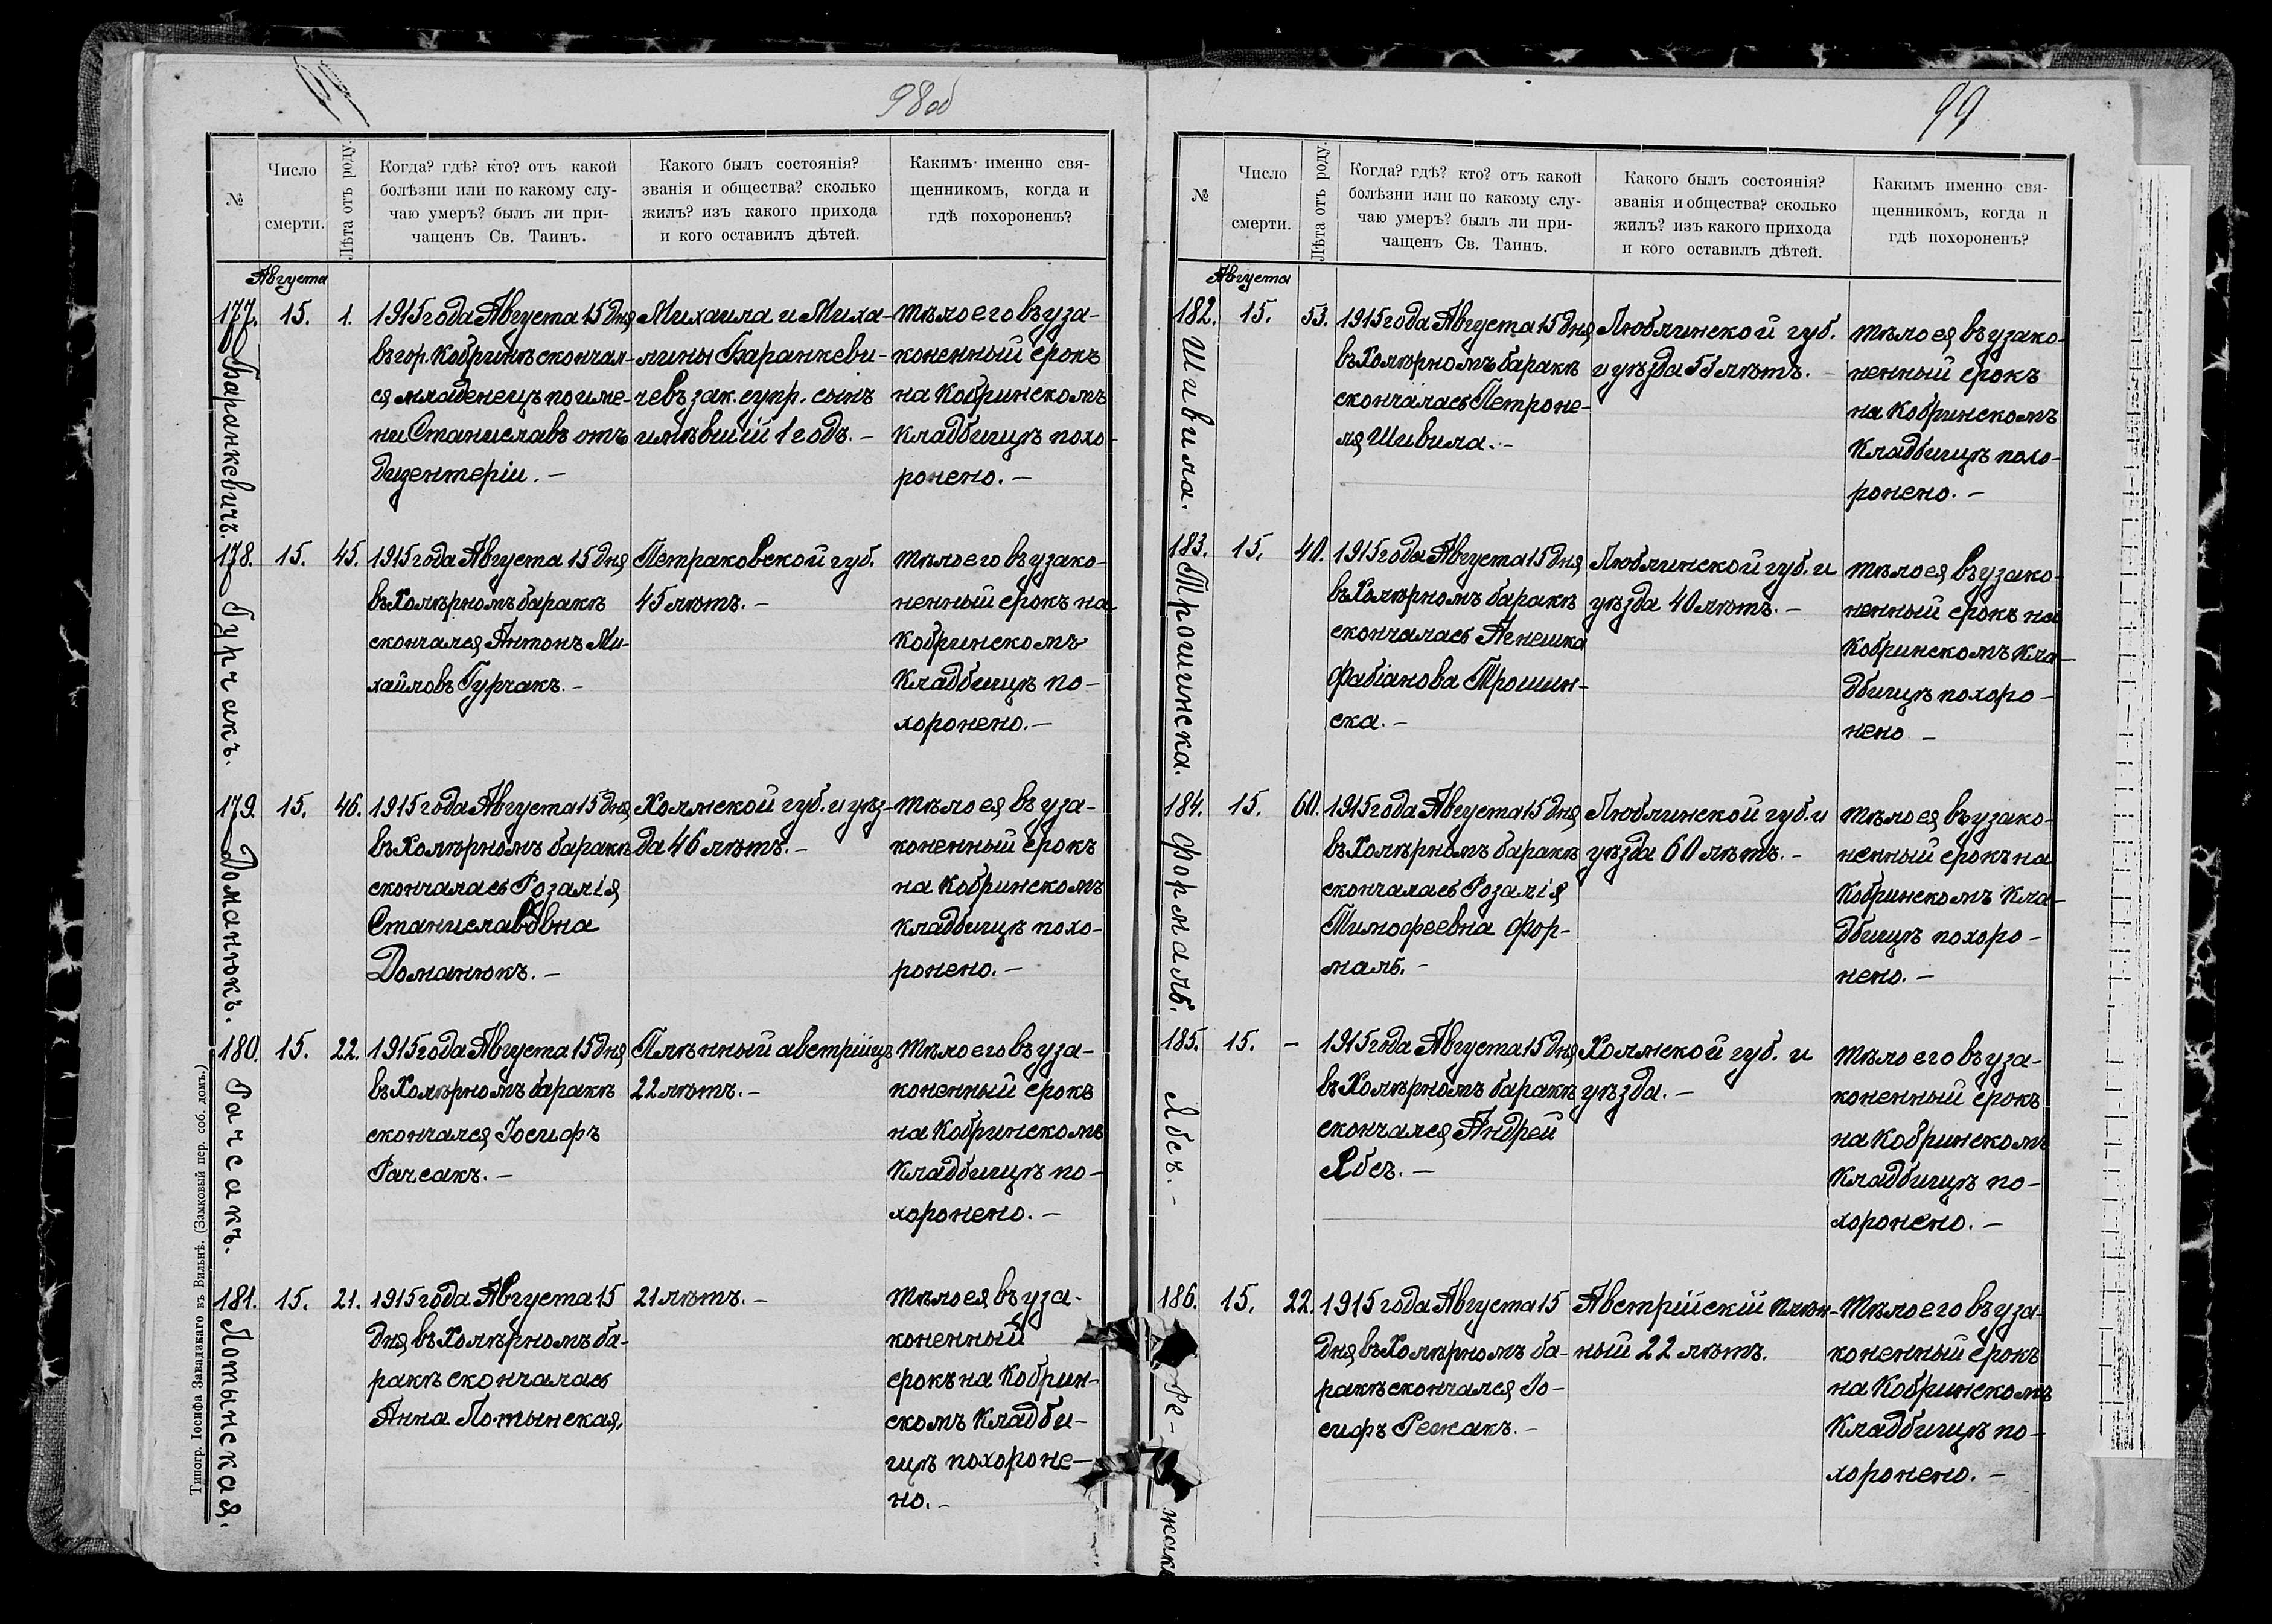 98об
№
Число
смерти.
Лѣта отъ роду.
Когда? гдѣ? кто? отъ какой
болѣзни или по какому слу-
чаю умеръ? былъ ли при-
чащенъ Св. Таинъ.
Какого былъ состоянія?
званія и общества? сколько
жилъ? изъ какого прихода
и кого оставилъ дѣтей.
Какимъ именно свя-
щенникомъ, когда и
гдѣ похороненъ?
Августа
177.
Баранкевичъ.
15.
1.
1915 года Августа 15 дня
въ гор. Кобринѣ скончал-
ся младенецъ по име-
ни Станиславъ отъ
дизентеріи. —
Михаила и Миха-
лины Баранкеви-
чевъ зак. супр. сынъ
имѣвшій 1 годъ. —
Тѣло его въ уза-
коненный срокъ
на Кобринскомъ
кладбищѣ похо-
ронено. —
178.
Гурчакъ.
15.
45.
1915 года Августа 15 дня
въ Холерномъ баракѣ
скончался Антонъ Ми-
хайловъ Гурчакъ. —
Петраковской губ.
45 лѣтъ. —
Тѣло его въ узако-
ненный срокъ на
Кобринскомъ
Кладбищѣ по-
хоронено. —
179.
Доманюкъ.
15.
46.
1915 года Августа 15 дня
въ Холерномъ баракѣ
скончалась Розалія
Станиславовна
Доманюкъ. —
Холмской губ. и уѣз-
да 46 лѣтъ. —
Тѣло ея въ уза-
коненный срокъ
на Кобринскомъ
кладбищѣ похо-
ронено. —
180.
Рачсакъ.
15.
22.
1915 года Августа 15 дня
въ Холерномъ баракѣ
скончался Іосифъ
Рачсакъ. —
Плѣнный австріецъ
22 лѣтъ. —
Тѣло его въ уза-
коненный срокъ
на Кобринскомъ
Кладбищѣ по-
хоронено. —
181.
Лотынская.
15.
21.
1915 года Августа 15
дня въ Холерномъ ба-
ракѣ скончалась
Анна Лотынская,
21 лѣтъ. —
Тѣло ея въ уза-
коненный
срокъ на Кобрин-
скомъ Кладби-
щѣ похороне-
но. —
Типогр. Іосифа Завадзкаго въ Вильнѣ. (Замковый пер. соб. домъ.)
99
№
Число
смерти.
Лѣта отъ роду.
Когда? гдѣ? кто? отъ какой
болѣзни или по какому слу-
чаю умеръ? былъ ли при-
чащенъ Св. Таинъ.
Какого былъ состоянія?
званія и общества? сколько
жилъ? изъ какого прихода
и кого оставилъ дѣтей.
Какимъ именно свя-
щенникомъ, когда и
гдѣ похороненъ?
Августа
182.
Шивила.
15.
53.
1915 года Августа 15 дня
въ Холерномъ баракѣ
скончалась Петроне-
ля Шивила. —
Люблинской губ.
и уѣзда 53 лѣтъ. —
Тѣло ея въ узако-
ненный срокъ
на Кобринскомъ
Кладбищѣ похо-
ронено. —
183.
Трошинска.
15.
40.
1915 года Августа 15 дня
въ Холерномъ баракѣ
скончалась Агнешка
Фабіанова Трошин-
ска. —
Люблинской губ. и
уѣзда 40 лѣтъ. —
Тѣло ея въ узако-
ненный срокъ на
Кобринскомъ Кла-
дбищѣ похоро-
нено —
184.
Формаль.
15.
60.
1915 года Августа 15 дня
въ Холерномъ баракѣ
скончалась Розалія
Тимофеевна Фор-
маль. —
Люблинской губ. и
уѣзда 60 лѣтъ. —
Тѣло ея въ узако-
ненный срокъ на
Кобринскомъ Кла-
дбищѣ похоро-
нено. —
185.
Ябсъ. —
15.
—
1915 года Августа 15 дня
въ Холерномъ баракѣ
скончался Андрей
Ябсъ. —
Холмской губ. и
уѣзда. —
Тѣло его въ уза-
коненный срокъ
на Кобринскомъ
Кладбищѣ по-
хоронено. —
186.
Ре-
жакъ
15.
22.
1915 года Августа 15
дня въ Холерномъ ба-
ракѣ скончался Іо-
сифъ Режакъ. —
Австрійскій плѣн-
ный 22 лѣтъ.
Тѣло его въ уза-
коненный срокъ
на Кобринскомъ
Кладбищѣ по-
хоронено. —